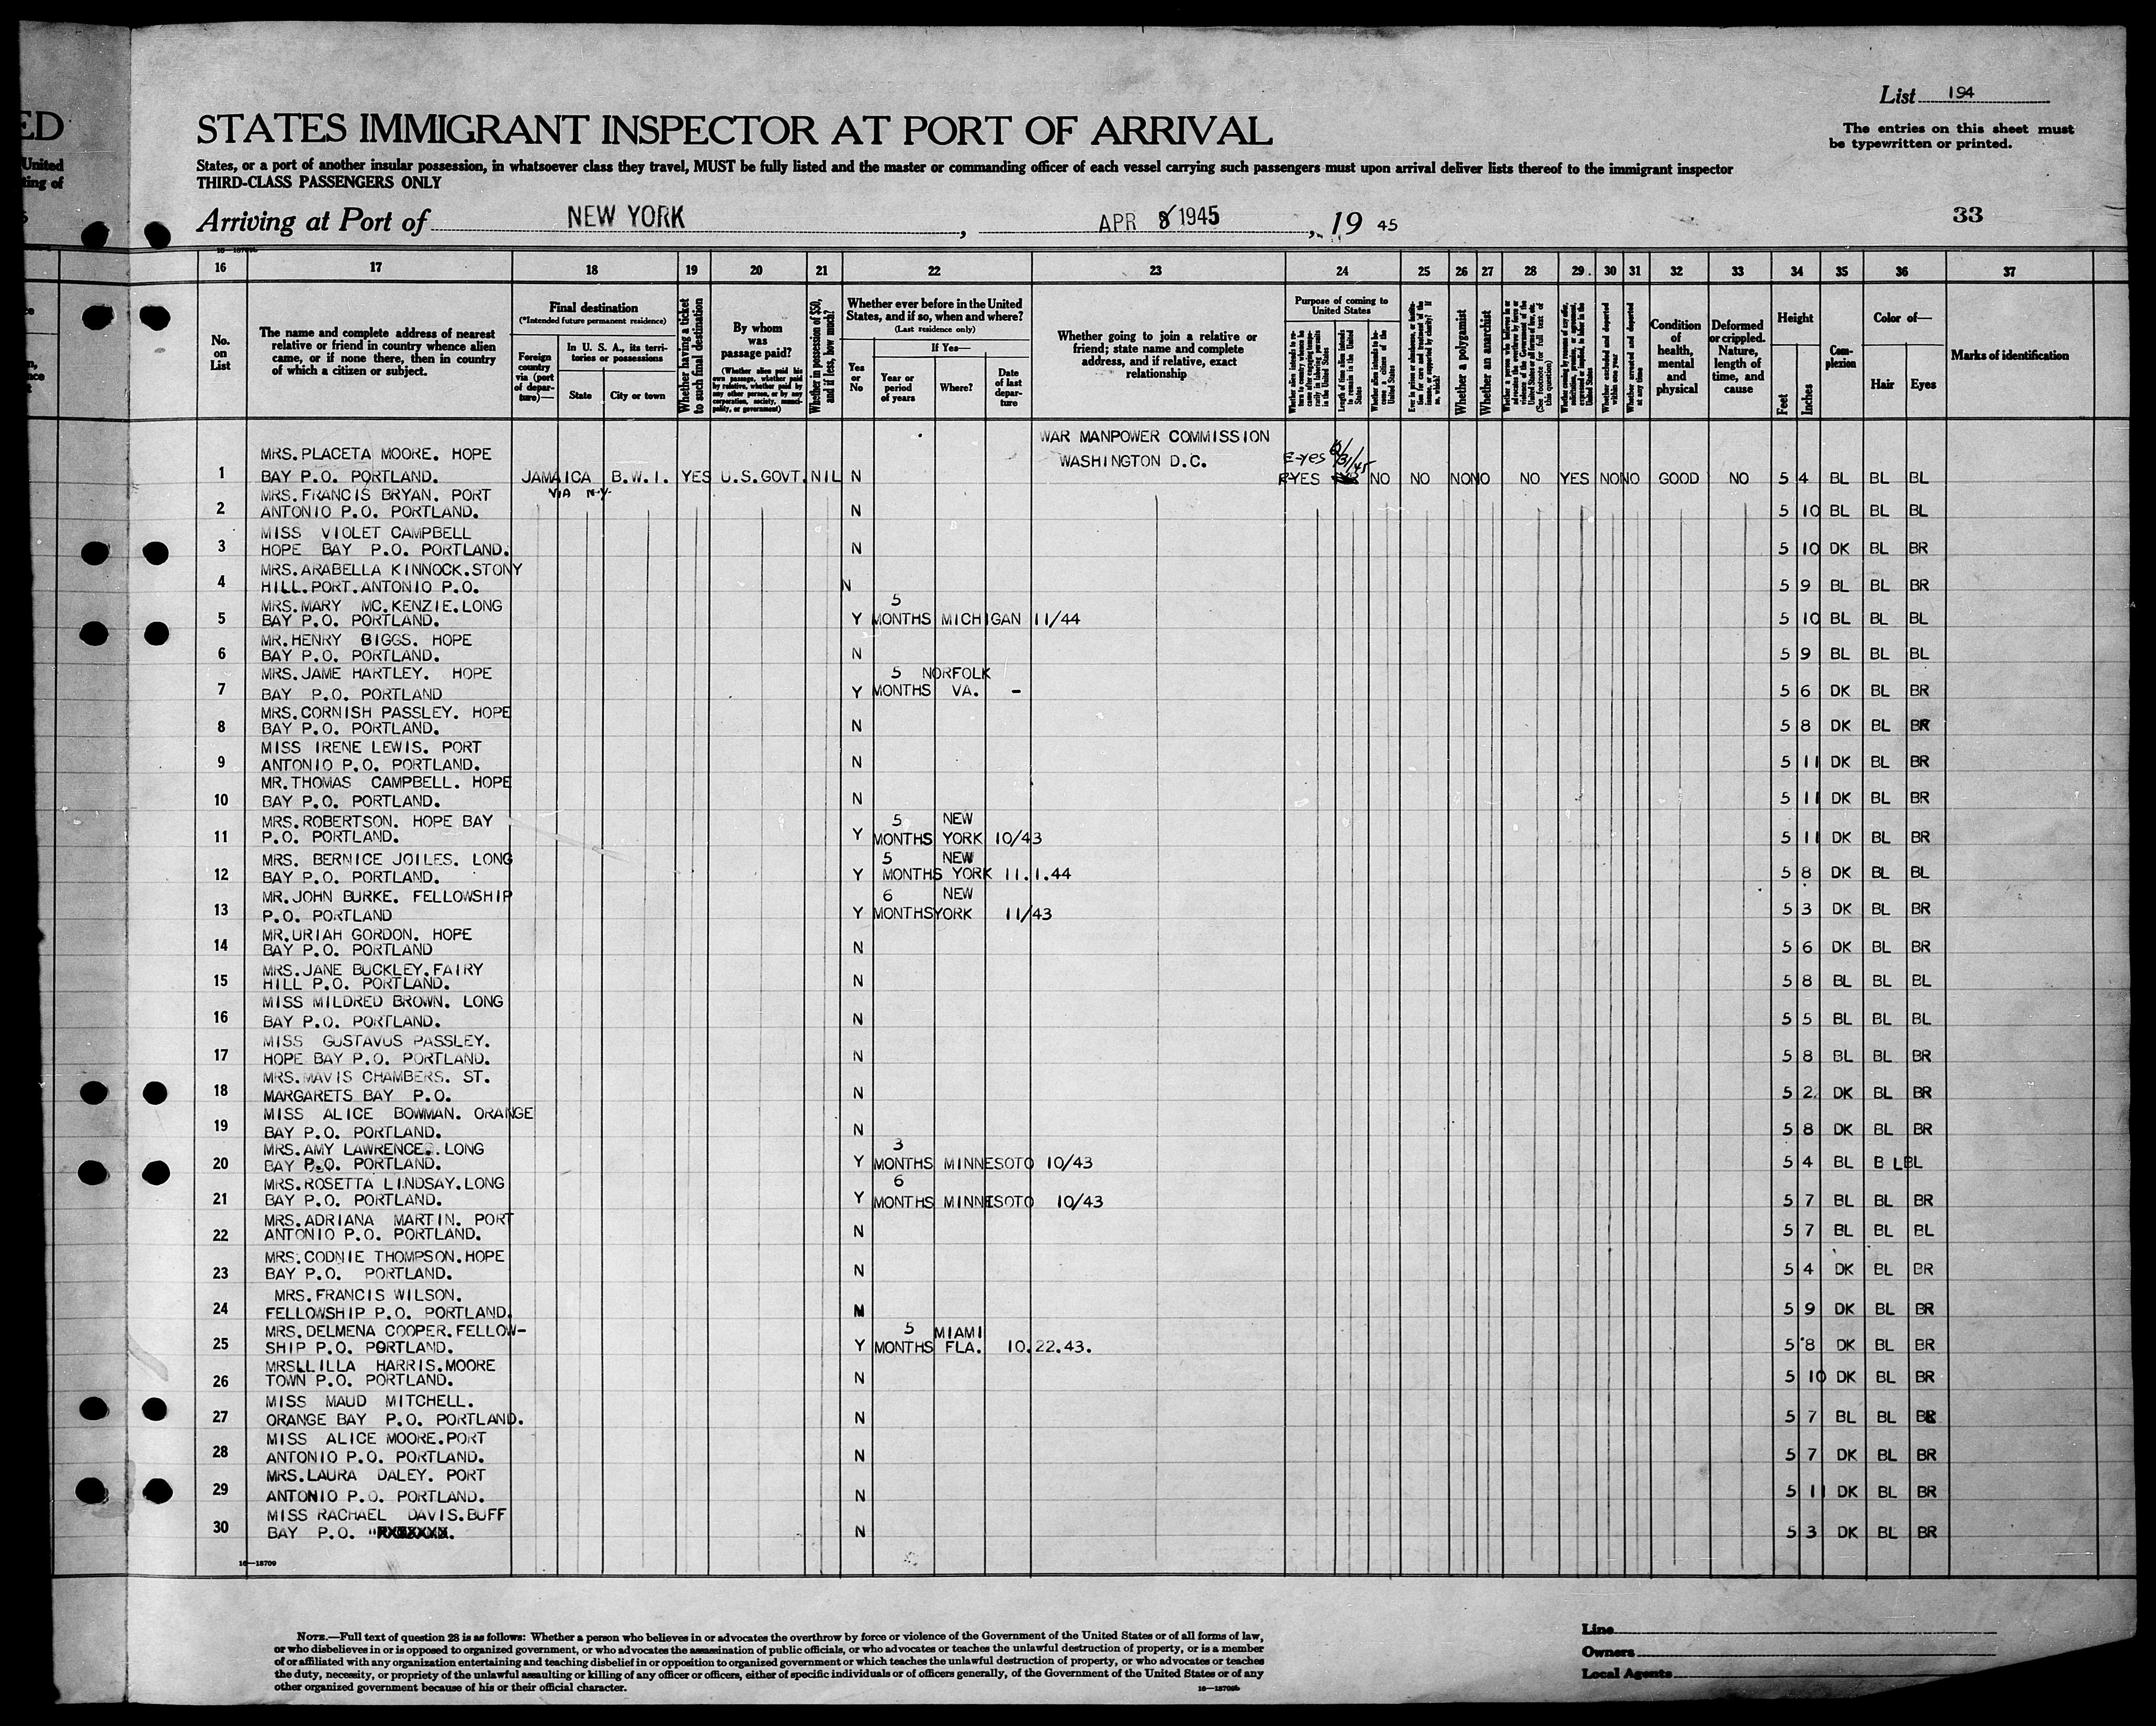 List 194
The entries on this sheet must
be typewritten or printed.
ED
STATES IMMIGRANT INSPECTOR AT PORT OF ARRIVAL
United
States, or a port of another insular possession, in whatsoever class they travel, MUST be fully listed and the master or commanding officer of each vessel carrying such passengers must upon arrival deliver lists thereof to the immigrant inspector
THIRD-CLASS PASSENGERS ONLY
Arriving at Port of NEW YORK, APR 8 1945, 19 45
33
16 17 18 19 20 21 22 23 24 25 26 27 28 29 30 31 32 33 34 35 36 37
No. on List
The name and complete address of nearest relative or friend in country whence alien came, or if none there, then in country of which a citizen or subject.
Final destination
(*Intended future permanent residence)
Foreign country via (port of departure)—
In U. S. A., its territories or possessions
State
City or town
Whether having a ticket to such final destination
By whom was passage paid?
(Whether alien paid his own passage, whether paid by relative, whether paid by any other person, or by any corporation, society, municipality, or government)
Whether in possession of $50, and if less, how much?
Whether ever before in the United States, and if so, when and where?
(Last residence only)
Yes or No
If Yes—
Year or period of years
Where?
Date of last departure
Whether going to join a relative or friend; state name and complete address, and if relative, exact relationship
Purpose of coming to United States
Whether a polygamist
Whether an anarchist
Whether excluded and deported within one year
Whether arrested and deported at any time
Condition of health, mental and physical
Deformed or crippled. Nature, length of time, and cause
Height
Feet
Inches
Complexion
Color of—
Hair
Eyes
Marks of identification
WAR MANPOWER COMMISSION
WASHINGTON D.C.
MRS. PLACETA MOORE. HOPE
1 BAY P.O. PORTLAND. JAMAICA B.W.I. YES U.S.GOVT. NIL N YES NO NO NO NO NO YES NO NO GOOD NO 5 4 BL BL BL
VIA N.Y.
MRS. FRANCIS BRYAN. PORT
2 ANTONIO P.O. PORTLAND. N 5 10 BL BL BL
MISS VIOLET CAMPBELL
3 HOPE BAY P.O. PORTLAND. N 5 10 DK BL BR
MRS. ARABELLA KINNOCK. STONY
4 HILL. PORT. ANTONIO P.O. N 5 9 BL BL BR
MRS. MARY MC. KENZIE. LONG 5
5 BAY P.O. PORTLAND. Y MONTHS MICHIGAN 11/44 5 10 BL BL BL
MR. HENRY BIGGS. HOPE
6 BAY P.O. PORTLAND. N 5 9 BL BL BL
MRS. JAME HARTLEY. HOPE 5 NORFOLK
7 BAY P.O. PORTLAND Y MONTHS VA. - 5 6 DK BL BR
MRS. CORNISH PASSLEY. HOPE
8 BAY P.O. PORTLAND. N 5 8 DK BL BR
MISS IRENE LEWIS. PORT
9 ANTONIO P.O. PORTLAND. N 5 11 DK BL BR
MR. THOMAS CAMPBELL. HOPE
10 BAY P.O. PORTLAND. N 5 11 DK BL BR
MRS. ROBERTSON. HOPE BAY 5 NEW
11 P.O. PORTLAND. Y MONTHS YORK 10/43 5 11 DK BL BR
MRS. BERNICE JOILES. LONG 5 NEW
12 BAY P.O. PORTLAND. Y MONTHS YORK 11.1.44 5 8 DK BL BL
MR. JOHN BURKE. FELLOWSHIP 6 NEW
13 P.O. PORTLAND Y MONTHS YORK 11/43 5 3 DK BL BR
MR. URIAH GORDON. HOPE
14 BAY P.O. PORTLAND N 5 6 DK BL BR
MRS. JANE BUCKLEY. FAIRY
15 HILL P.O. PORTLAND. N 5 8 BL BL BL
MISS MILDRED BROWN. LONG
16 BAY P.O. PORTLAND. N 5 5 BL BL BL
MISS GUSTAVUS PASSLEY.
17 HOPE BAY P.O. PORTLAND. N 5 8 BL BL BR
MRS. MAVIS CHAMBERS. ST.
18 MARGARETS BAY P.O. N 5 2 DK BL BR
MISS ALICE BOWMAN. ORANGE
19 BAY P.O. PORTLAND. N 5 8 DK BL BR
MRS. AMY LAWRENCE. LONG 3
20 BAY P.O. PORTLAND. Y MONTHS MINNESOTO 10/43 5 4 BL B L BL
MRS. ROSETTA LINDSAY. LONG 6
21 BAY P.O. PORTLAND. Y MONTHS MINNESOTO 10/43 5 7 BL BL BR
MRS. ADRIANA MARTIN. PORT
22 ANTONIO P.O. PORTLAND. N 5 7 BL BL BL
MRS. CODNIE THOMPSON. HOPE
23 BAY P.O. PORTLAND. N 5 4 DK BL BR
MRS. FRANCIS WILSON.
24 FELLOWSHIP P.O. PORTLAND. N 5 9 DK BL BR
MRS. DELMENA COOPER. FELLOW- 5 MIAMI
25 SHIP P.O. PORTLAND. Y MONTHS FLA. 10.22.43. 5 8 DK BL BR
MRSLLILLA HARRIS. MOORE
26 TOWN P.O. PORTLAND. N 5 10 DK BL BR
MISS MAUD MITCHELL.
27 ORANGE BAY P.O. PORTLAND. N 5 7 BL BL BR
MISS ALICE MOORE. PORT
28 ANTONIO P.O. PORTLAND. N 5 7 DK BL BR
MRS. LAURA DALEY. PORT
29 ANTONIO P.O. PORTLAND. N 5 11 DK BL BR
MISS RACHAEL DAVIS. BUFF
30 BAY P.O. N 5 3 DK BL BR
16—18709
NOTE.—Full text of question 28 is as follows: Whether a person who believes in or advocates the overthrow by force or violence of the Government of the United States or of all forms of law,
or who disbelieves in or is opposed to organized government, or who advocates the assassination of public officials, or who advocates or teaches the unlawful destruction of property, or is a member
of or affiliated with any organization entertaining and teaching disbelief in or opposition to organized government or which teaches the unlawful destruction of property, or who advocates or teaches
the duty, necessity, or propriety of the unlawful assaulting or killing of any officer or officers, either of specific individuals or of officers generally, of the Government of the United States or of any
other organized government because of his or their official character.
Line
Owners
Local Agents